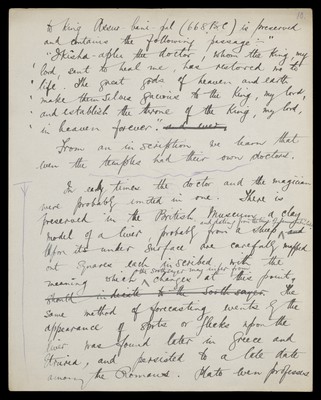 to King Assur bani pal (668 B.C) is preserved
and contains the following passage:—
"Ikisha-aplu the doctor, whom the King, my
lord, sent to heal me, has restored me to
life. The great gods of heaven and earth
make themselves gracious to the King, my lord,
and establish the throne of the King, my lord,
in heaven forever."
From an inscription we learn that
even the temples had their own doctors.
In early times the doctor and the magician
were probably united in one. There is
preserved in the British Museum a clay
model of a liver probably from a sheep and
Upon its under surface are carefully mapped
out squares each inscribed with the
the soothsayer may infer from
meaning which changes at this point,
should indicate to the soothsayer. The
same method of forecasting events by the
appearance of spots or flecks upon the
liver was found later in Greece and
Etruria, and persisted to a late date
among the Romans. Plato even professes